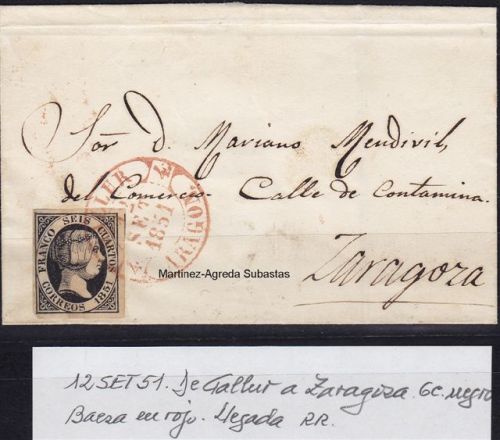 Sor. D. Mariano Mendivil,
del Comercio Calle de Contamina.
Zaragoza
SET
1851
FRANCO SEIS CUARTOS
CORREOS 1851
Martinez-Agreda Subastas
12 SET 51. De Gallur a Zaragoza. 6c. negro
Baeza en rojo. Llegada RR.